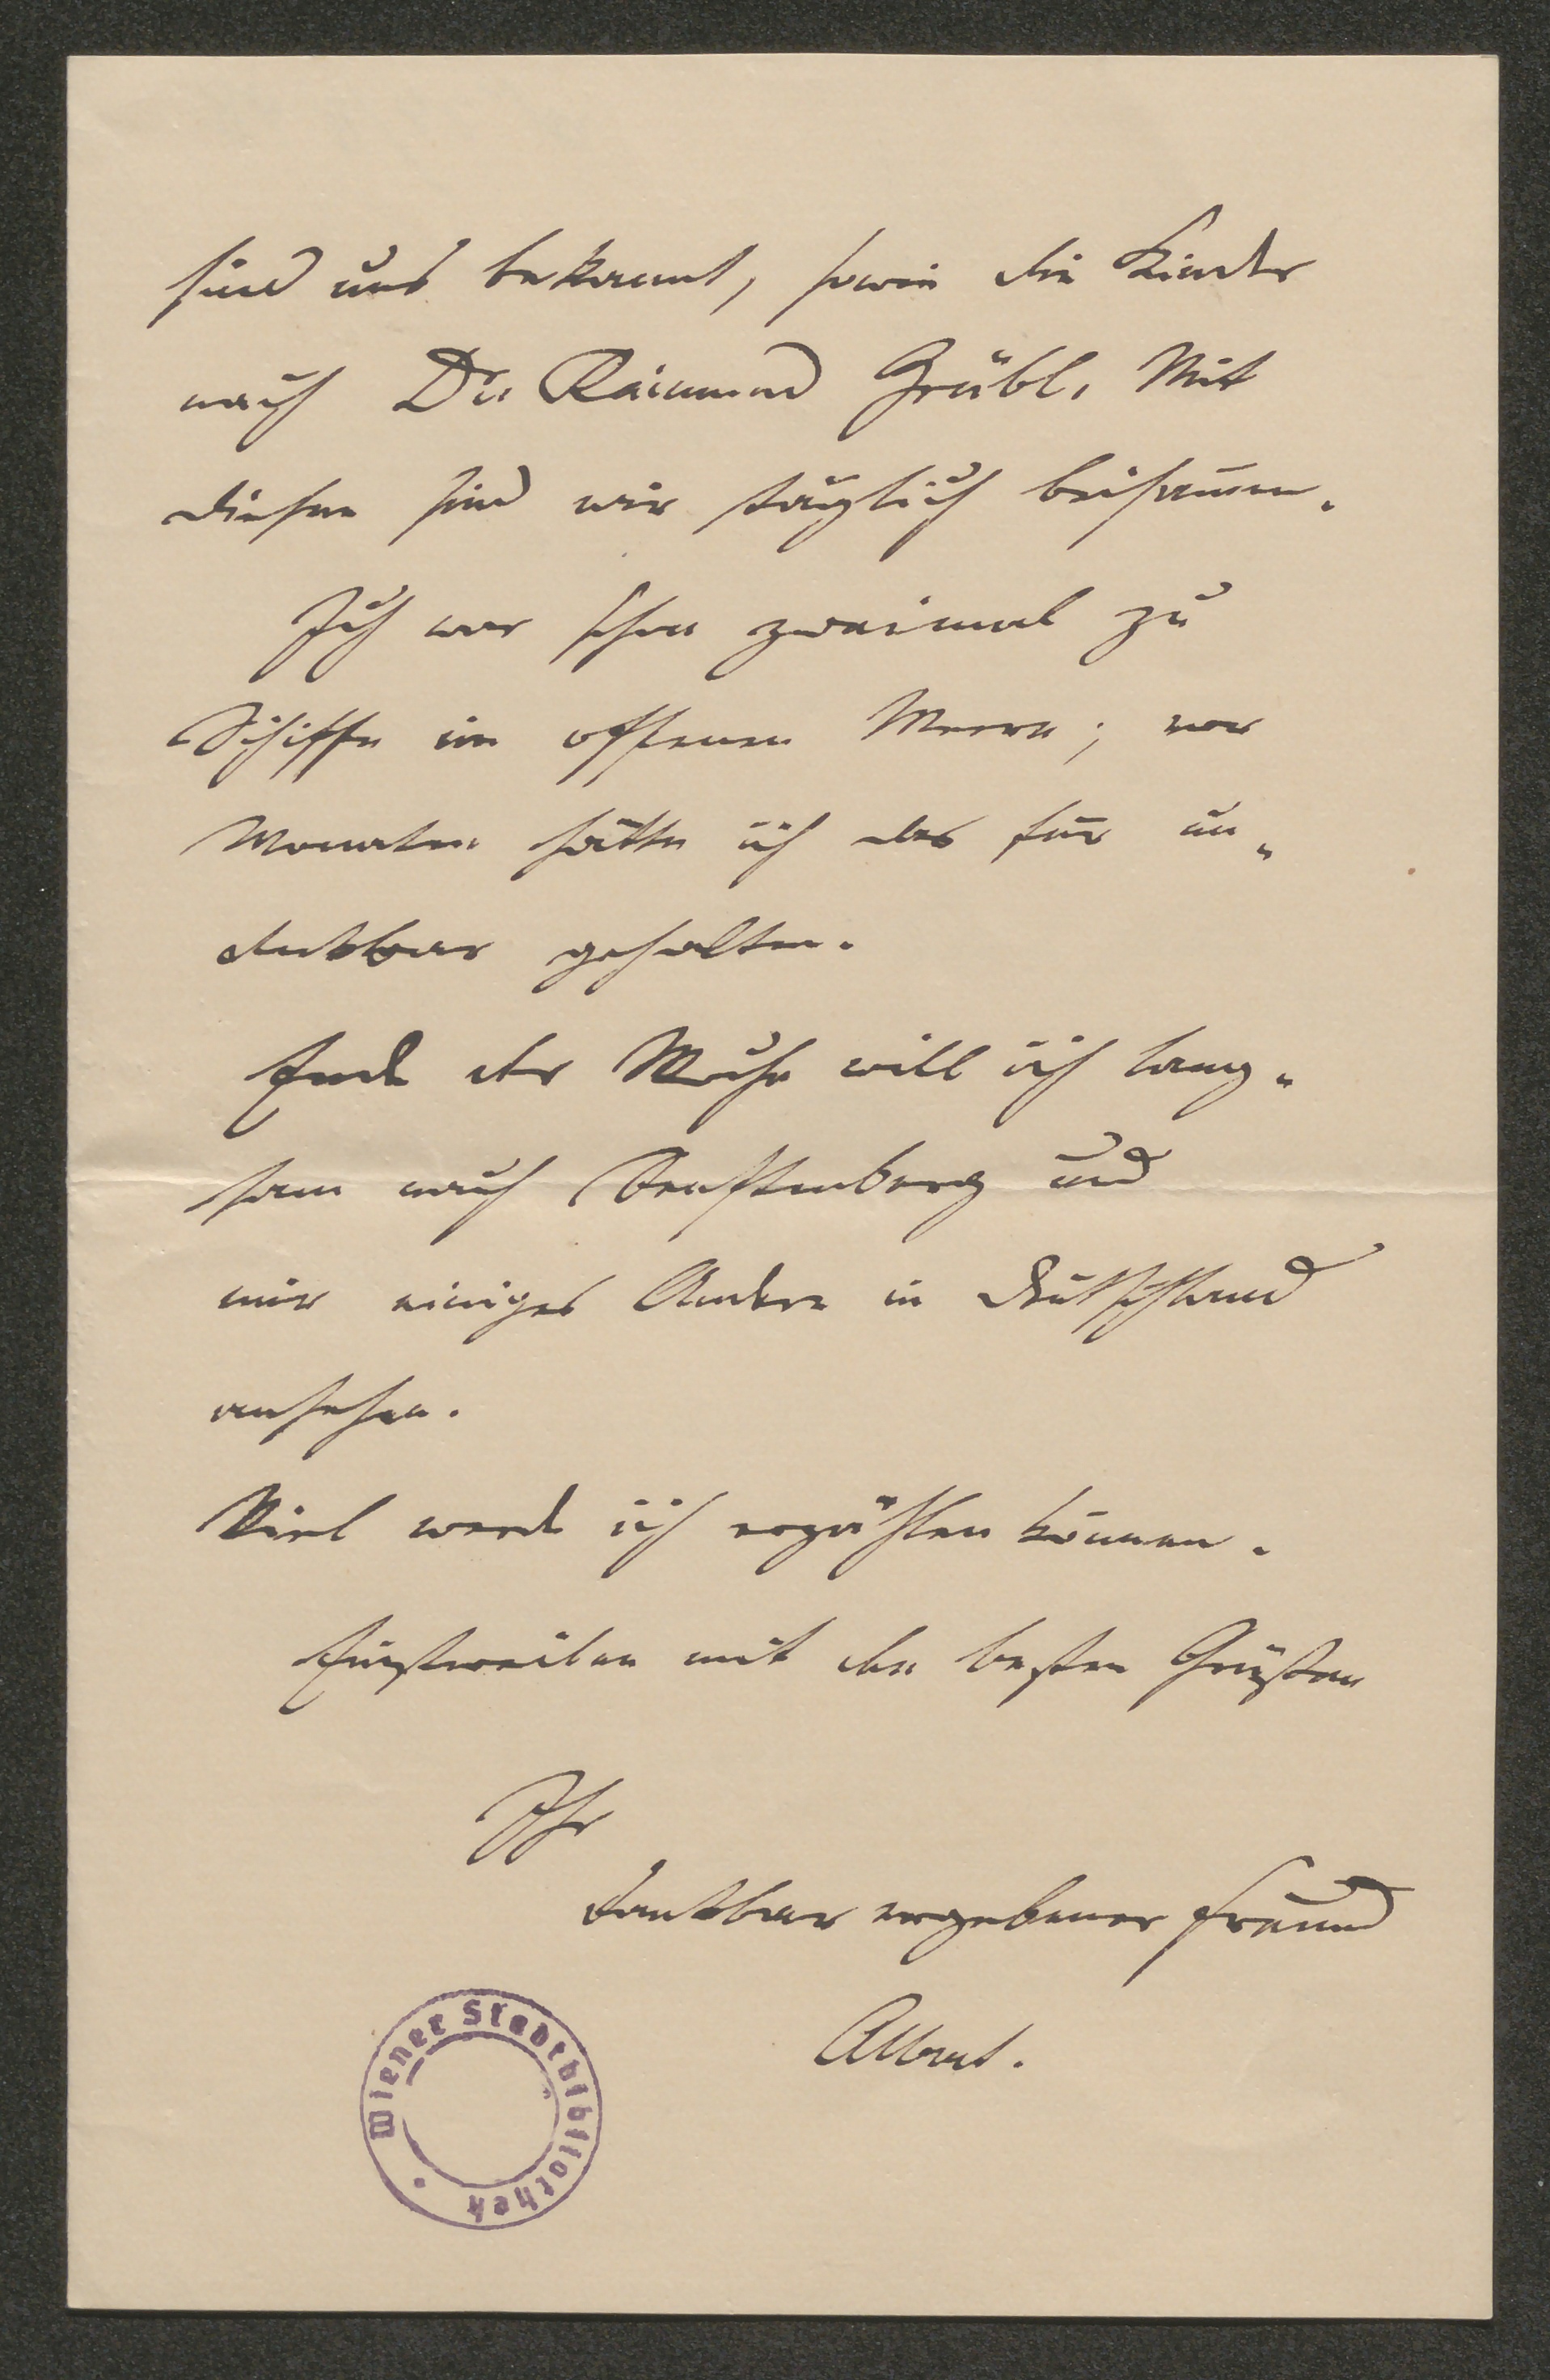 sind uns bekannt, sowie die Kinder
nach Dr. Raimund Grübl. Mit
diesen sind wir täglich beisam̄en.
Ich war schon zweimal zu
Schiffe im offenen Meere; vor
Monaten hätte ich das für un„
denkbar gehalten.
Ende der Woche will ich lang„
sam nach Senftenberg und
mir einiges Andere in Deutschland
ansehen.
Viel werde ich erzählen können.
Einstweilen mit den besten Grüßen
Ihr
dankbar ergebener Freund
Wiener Stadtbibliothek